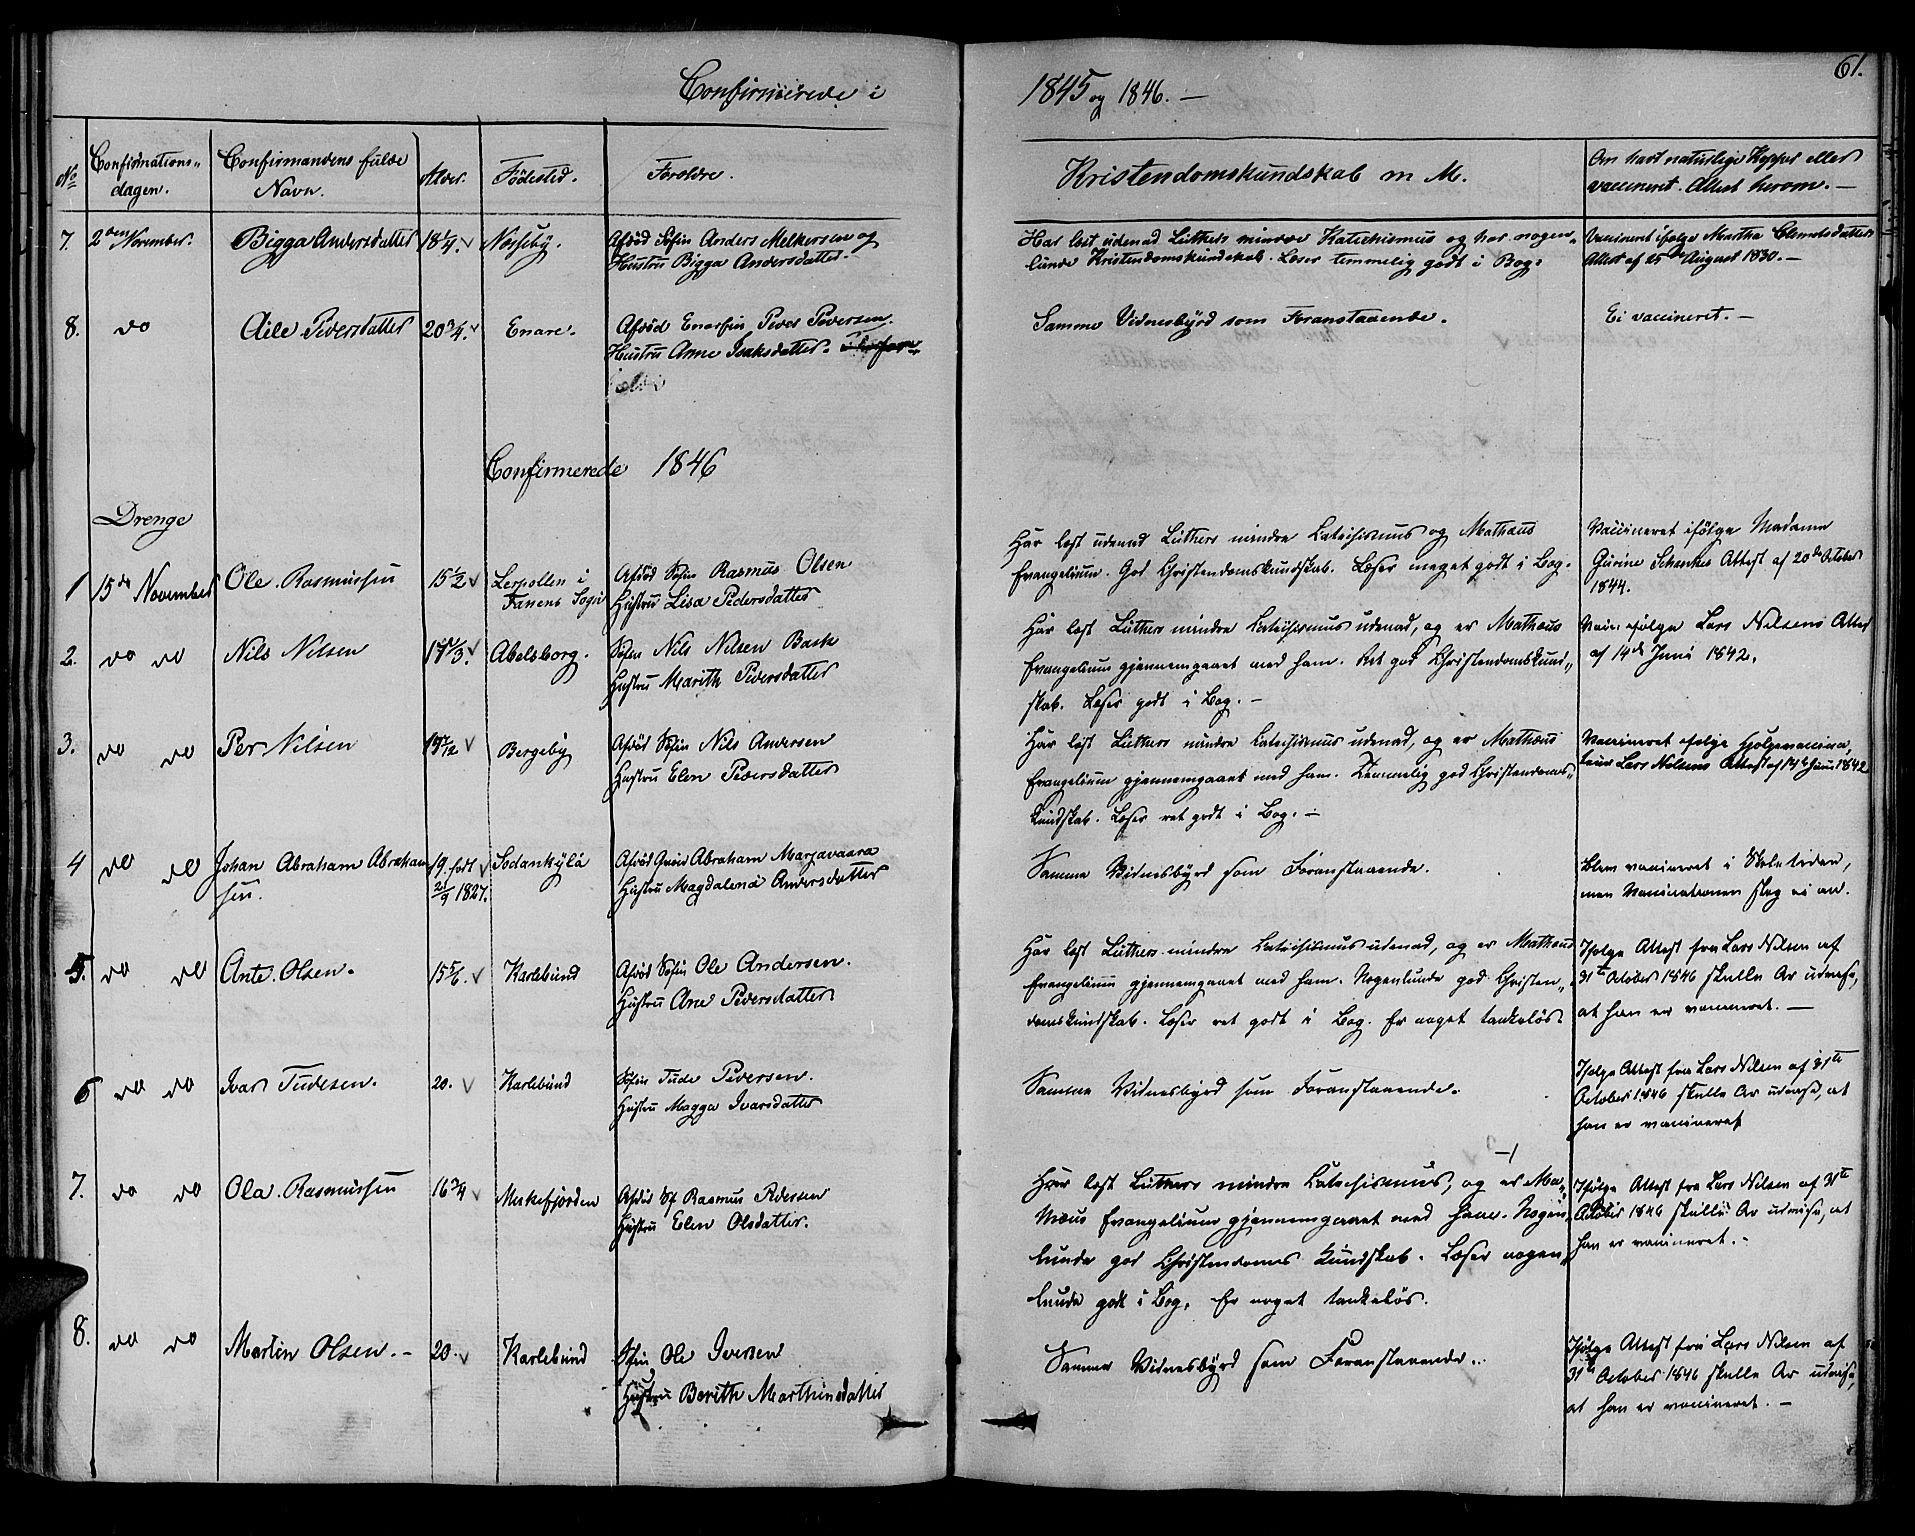 61.
Confirmerede i 1845 og 1846. —
No
Confirmations-
dagen.
Confirmandens fulde
Navn.
Alder.
Fødested.
Forældre.
Kristendomskundskab m M.
Om havt naturlige Kopper eller
vaccineret. Attest herom. —
7. 2den November. Bigga Andersdatter 18 1/4. Næsseby.
Afdød Søfin Anders Melkersen og
Hustru Bigga Andersdatter.
Har læst udenad Luthers mindre Katechismus og har nogen-
lunde Kristendomskundskab. Læser temmelig godt i Bog.
Vaccineret ifølge Martha Clemetsdatters
Attest af 25de August 1830. —
8. do Aile Pedersdatter 20 3/4. Enare.
Afdød Enarfin Peder Pedersen.
Hustru Anne Isaksdatter.
Samme Vidnesbyrd som Foranstaaende.
Ei vaccineret. —
Confirmerede 1846
Drenge
1 15de November Ole Rasmussen 15 1/2 Lerpollen i
Tanens Sogn
Afdød Søfin Rasmus Olsen
Hustru Lisa Pedersdatter
Har læst udenad Luthers mindre Catechismus og Mathæus
Evangelium. God Christendomskundskab. Læser meget godt i Bog.
Vaccineret ifølge Madame
Gurine Schankes Attest af 20de October
1844.
2. do do Nils Nilsen Abelsborg.
Søfin Nils Nilsen Bask
Hustru Marith Pedersdatter
Har læst Luthers mindre Catechismus udenad, og er Mathæus
Evangelium gjennemgaaet med ham. Ret god Christendomskund-
skab. Læser godt i Bog. —
Vacc. ifølge Lars Nilsens Attest
af 14de Juni 1842.
3. do do Per Nilsen Bergeby
Afdød Søfin Nils Andersen
Hustru Elen Pedersdatter
Har læst Luthers mindre Catechismus udenad, og er Mathæus
Evangelium gjennemgaaet med ham. Temmelig god Christendoms-
kundskab. Læser ret godt i Bog. —
Vaccineret ifølge Hjelpevaccina-
teur Lars Nilsens Attest af 14de Juni 1842
4 do do Johan Abraham Abraham
sen. 19. født
21/9 1827. Sodankylä
Afdød Qvæn Abraham Marjavaara
Hustru Magdalena Andersdatter
Samme Vidnesbyrd som Foranstaaende.
Blev vaccineret i Skoletiden,
men Vaccinationen slog ei an.
5. do do Ante Olsen. 15 5/6. Karlebund
Afdød Søfin Ole Andersen.
Hustru Ane Pedersdatter
Har læst Luthers mindre Catechismus udenad, og er Mathæus
Evangelium gjennemgaaet med ham. Nogenlunde god Christen-
domskundskab. Læser ret godt i Bog. Er noget tankeløs.
Ifølge Attest fra Lars Nilsen af
31te October 1846 skulle Ar udvise,
at han er vaccineret. —
6 do do Ivar Tudesen. 20. Karlebund
Søfin Tude Pedersen.
Hustru Magga Ivarsdatter
Samme Vidnesbyrd som Foranstaaende.
Ifølge Attest fra Lars Nilsen af 31te
October 1846 skulle Ar udvise, at
han er vaccineret
7. do do Ola Rasmussen 16 3/4 Meskefjorden
Afdød Søf Rasmus Pedersen
Hustru Elen Olsdatter.
Har læst Luthers mindre Catechismus, og er Ma-
thæus Evangelium gjennemgaaet med ham. Nogen-
lunde god Christendoms Kundskab. Læser nogen-
lunde godt i Bog. Er noget tankeløs.
Ifølge Attest fra Lars Nilsen af 31te
October 1846 skulle Ar udvise, at
han er vaccineret. -
8. do do Martin Olsen. - 20. Karlebund
Søfin Ole Iversen
Hustru Berith Marthinsdatter
Samme Vidnesbyrd som Foranstaaende.
Ifølge Attest fra Lars Nilsen af
31te October 1846 skulle Ar udvise,
at han er vaccineret. —